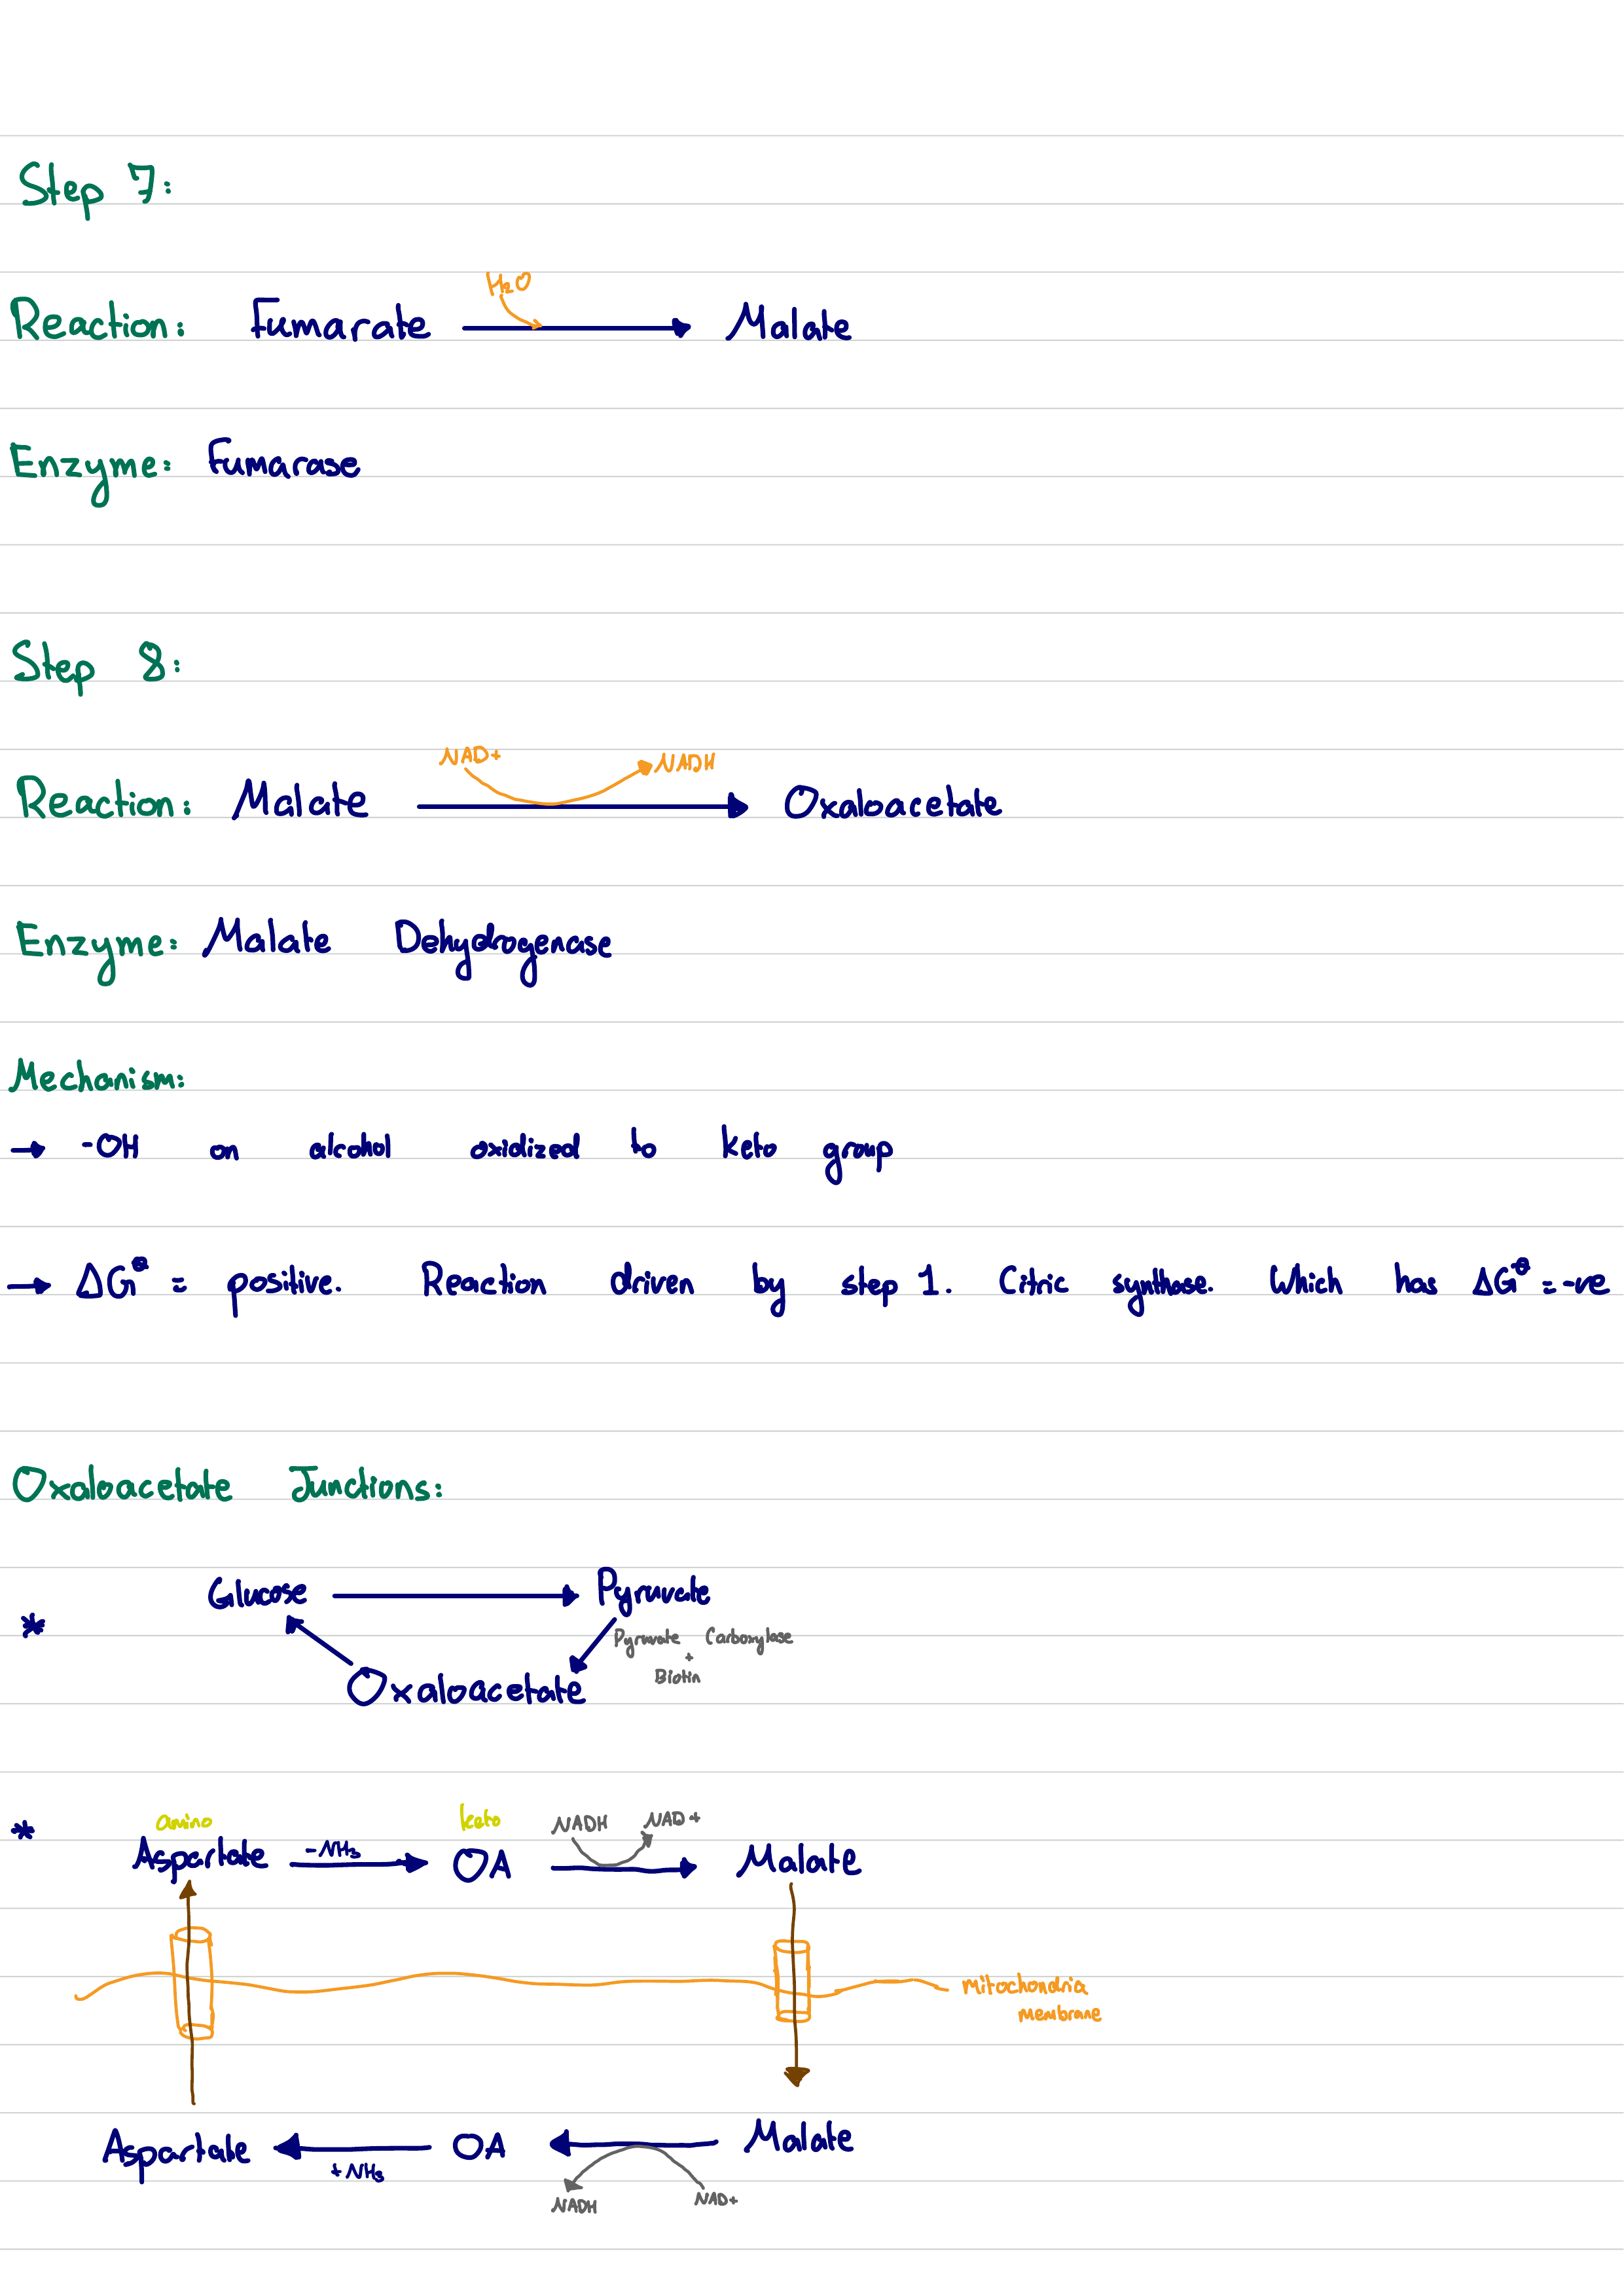 Step 7:
H₂O
Reaction: Fumarate → Malate
Enzyme: Fumarase
Step 8:
NAD+ NADH
Reaction: Malate → Oxaloacetate
Enzyme: Malate Dehydrogenase
Mechanism:
→ -OH on alcohol oxidized to keto group
→ ΔG° = positive. Reaction driven by step 1. Citric synthase. Which has ΔG° = -ve
Oxaloacetate Junctions:
* Glucose → Pyruvate
Pyruvate Carboxylase
+
Biotin
Oxaloacetate
amino keto NADH NAD+
* Aspartate -NH₃ → OA → Malate
Mitochondria
membrane
Aspartate ← OA ← Malate
+NH₃
NADH NAD+